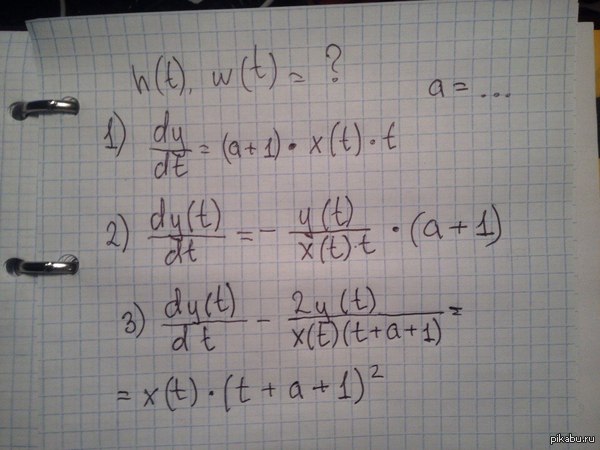 h(t), w(t) = ?
a = ...
1) dy/dt = (a+1) • x(t) • t
2) dy(t)/dt = - y(t)/x(t)t • (a+1)
3) dy(t)/dt - 2y(t)/x(t)(t+a+1) =
= x(t) • (t + a + 1)²
pikabu.ru